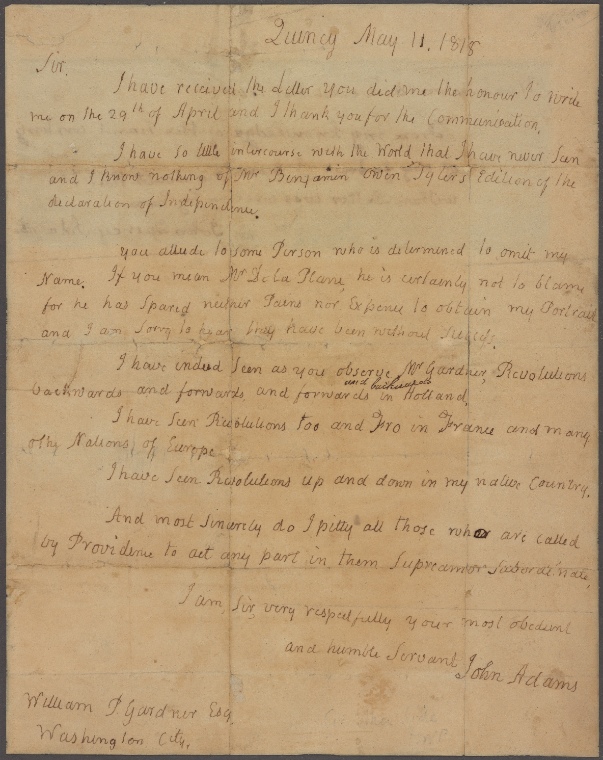 Quincy May 11. 1818
Sir.
I have received the Letter you did me the honour to write
me on the 29th of April and I thank you for the Communication.
I have so little intercourse with the World that I have never seen
and I know nothing of Mr Benjamin Owen Tyler's Edition of the
declaration of Independence.
you allude to some Person who is determined to omit my
Name. If you mean Mr De La Plane, he is certainly not to blame
for he has Spared neither Pains nor Expence to obtain my Portrait
and I am Sorry to hear they have been without Success.
I have indeed Seen as you observe, Mr Gardner, Revolutions
and backwards
backwards and forwards, and forwards in Holland.
I have Seen Revolutions too and Fro in France and many
other Nations of Europe
I have Seen Revolutions up and down in my native Country.
And most Sincerely do I pitty all those who are called
by Providence to act any part in them Supream or Subordinate.
I am, Sir, very respectfully your most obedient
and humble Servant John Adams
William P Gardner Esq.
Washington City.